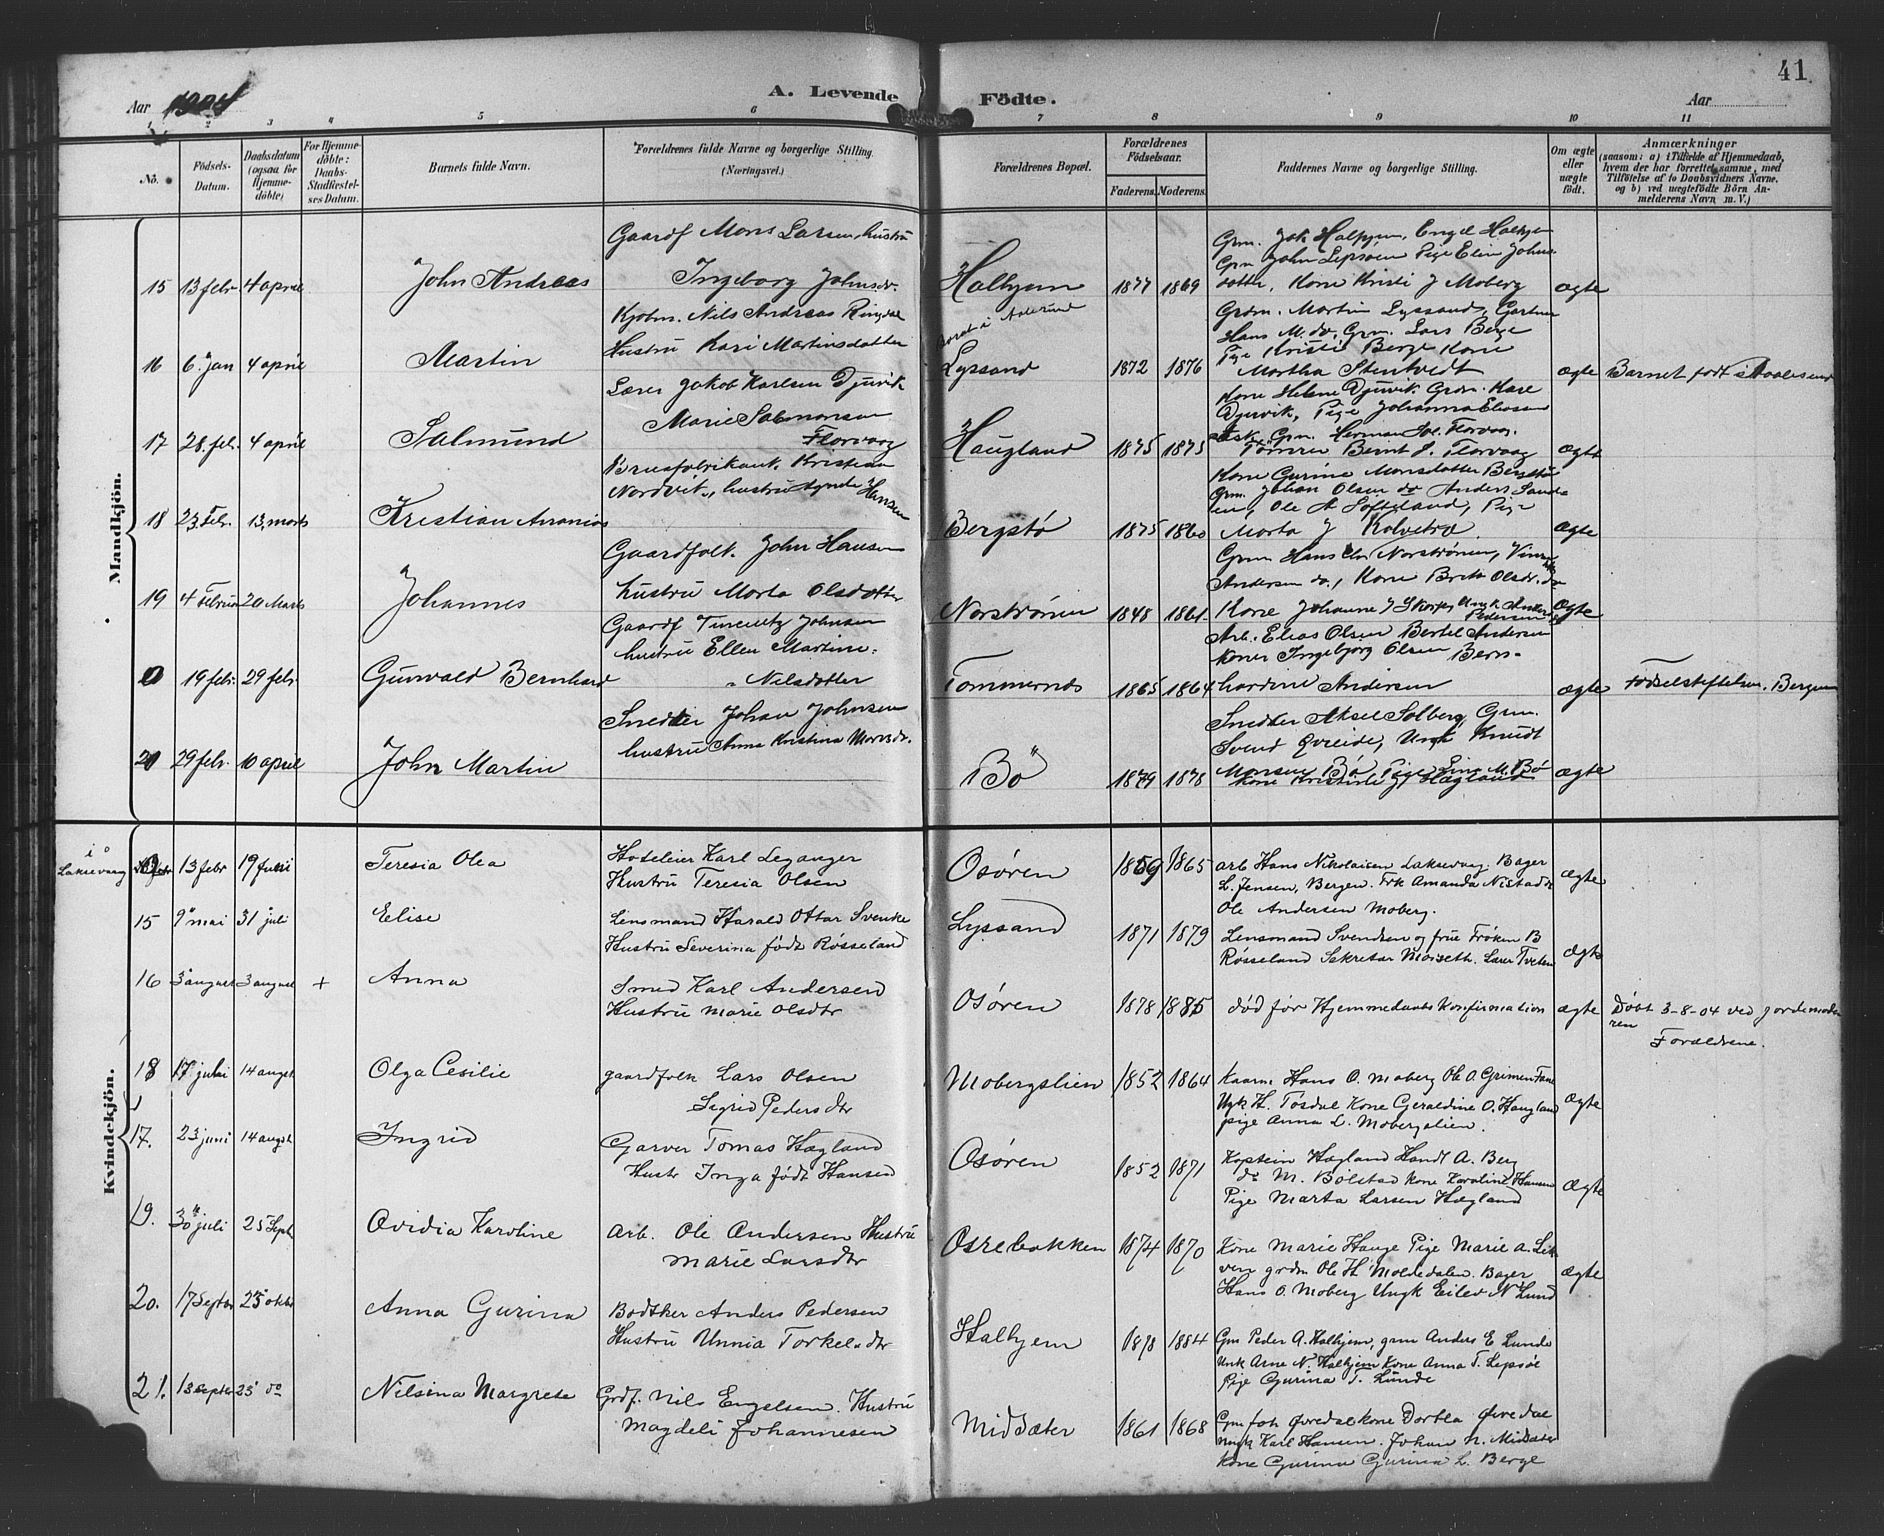 41
Aar 1904
A. Levende Födte.
Aar
1 2 3 4 5 6 7 8 9 10 11
No.
Födsels-Datum.
Daabsdatum (ogsaa for Hjemme-döbte)
For Hjemme-döbte: Daabs-Stadfæstel-ses Datum.
Barnets fulde Navn.
Forældrenes fulde Navne og borgerlige Stilling. (Næringsvei.)
Forældrenes Bopæl.
Forældrenes Födselsaar.
Faderens. Moderens.
Faddernes Navne og borgerlige Stilling.
Om ægte eller uægte födt.
Anmærkninger
(saasom: a) i Tilfælde af Hjemmedaab, hvem der har forrettet samme, med Tilföielse af to Daabsvidners Navne. og b) ved uægtefödte Börn An-melderens Navn m. V.)
Mandkjön.
Gaardf Mons Larsen, hustru
15 13 febr 4 april John Andreas Ingeborg Johnsdr. Halhjem 1877 1869
Grm. Jak Halhjem, Engel Halhjem
Grm John Lepsøen Pige Elin Johns-
datter, Kone Kristi J Moberg ægte
Kjøbm. Nils Andreas Ringdal
Hustru Kari Martinsdatter
16 6 Jan 4 april Martin Lyssand 1872 1876
Grdm. Martin Lyssand, Gartner
Hans M. do, Grm. Lars Berge
Pige Kristi Berge Kone
Martha Stentvedt ægte Barnet født i Aalesund
Lærer Jakob Karlsen Djuvik
Marie Salmonsen
Florvaag
17 28 feb. 4 april Salmund Haugland 1875 1875
Kone Helene Djuvik Grdm. Kare
Djuvik, Pige Johanna Eliasen
Ask, Grm. Herman Flor­vaag.
Tømrer Bernt J. Florvaag ægte
Brusfabrikant Kristian
Nordvik, hustru Agnete Hansen
18 23 Feb. 13 marts Kristian Ananias Bergstø 1875 1860
Kone Gurine Monsdatter Bergstø
Grm. Johan Olsen do Anders Sand-
en, Ole A Softeland, Pige
Marta J Kolvetra ægte
Gaardfolk. John Hansen
hustru Marta Olsdatter
19 4 Februar 20 Marts Johannes Norstrønen 1848 1861
Andersen do., Kone Brita Olsdr. do
Kone Johanne J Skorpe ægte
Gaardf Vincentz Johnsen
hustru Ellen Martine
Nilsdatter
19 febr. 29 febr. Gunvald Bernhard Tømmernæs 1865 1864
Arb. Elias Olsen Bertel Andersen
Koner Ingebjørg Olsen Bern-
hardine Andersen ægte Fødselstiftelsen, Bergen
Snedker Johan Johnsen
hustru Anna Kristina Monsdr.
21 29 febr. 10 april John Martin Bö 1879 1878
Snedker Aksel Solberg, Grm.
Svend Øvreide, Ungk Knudt
Monsen Bø Pige Lina M. Bø
Kone Kristine Hægland ægte
Kvindekjön.
i Laksevaag
13 febr 19 Juni Teresia Olea
Hotelleier Karl Leganger
Hustru Teresia Olsen
Osøren 1859 1865
arb Hans Nikolaisen Laksevaag. Bager
L. Jensen, Bergen. Frk Amanda Nistad
Ole Andersen Moberg. ægte
15 9 mai 31 juli Elise
Lensmand Harald Ottar Svenke
Hustru Severina født Røsseland
Lyssand 1871 1879
Lensmand Svendsen og frue Frøken B
Røsseland Sekretær Moiseth. Lærer Tveten ægte
16 3 august 3 august + Anna
Smed Karl Andersen
Hustru Marie Olsdtr
Osøren 1878 1885 død før Hjemmedaabs Konfirmation ægte
Døbt 3-8-04 ved jordemode-
ren
Forældrene.
18 17 juli 14 augst Olga Cesilie
gaardfolk Lars Olsen
Sigrid Pedersdtr
Mobergslien 1852 1864
Kaarm Hans O. Moberg Ole O. Grimen Fane
Ungk H. Tøsdal Kone Geraldine O. Haugland
pige Anna L. Mobergslien. ægte
17. 23 juni 14 augst Ingrid
Garver Tomas Hægland
Hustr Inga født Hansen
Osøren 1852 1871
Kaptein Hægland Handl A. Berg
do M. Bolstad Kone Karoline Hansen
Pige Marta Larsen Hægland ægte
19. 30 juli 25 Septb Ovidia Karoline
Arb. Ole Andersen Hustru
Marie Larsdtr
Osrebakken 1874 1870
Kone Marie Hauge Pige Marie A. Lek-
ven grdm Ole H Moldedalen. Bager
Hans O. Moberg Ungk Eilev N Lund ægte
20. 17 Septbr 25 oktbr Anna Gurina
Bødtker Anders Pedersen
Hustru Unnia Torkelsdtr
Halhjem 1878 1884
Gm Peder A. Halhjem, gm Anders E Lunde
Unk Arne N. Halhjem Kone Anna T. Lepsøe
Pige Gurina T. Lunde
21. 13 septbr 25 do Nilsina Margrete
Grdf. Nils Engelsen. Hustru
Magdeli Johannesen
Midsæter 1861 1868
Gm Joh Øvredal kone Dortea Øvredal
ungk Karl Hansen. Johan N. Midsæter
Kone Gurina Gurina L. Berge